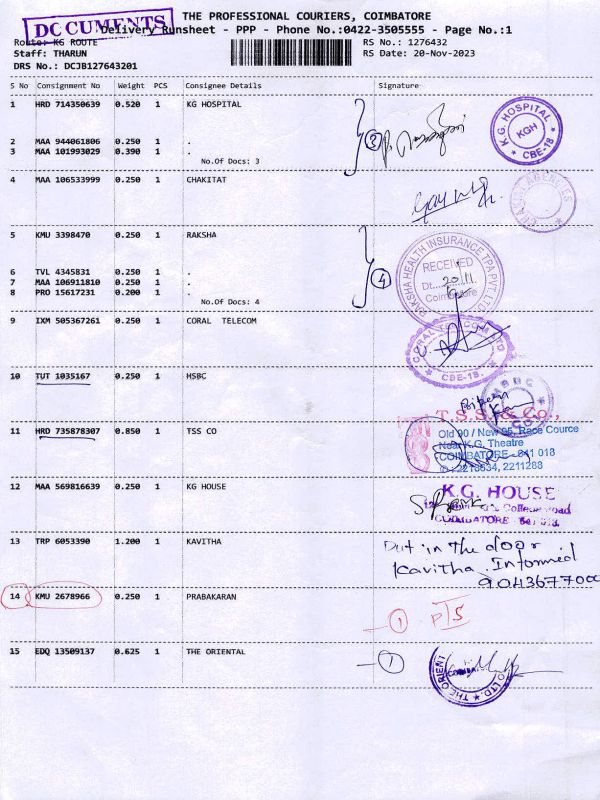 DOCUMENTS
THE PROFESSIONAL COURIERS, COIMBATORE
Delivery Runsheet - PPP - Phone No.:0422-3505555 - Page No.:1
Route: KG ROUTE
RS No.: 1276432
Staff: THARUN
RS Date: 20-Nov-2023
DRS No.: DCJB127643201
S No Consignment No Weight PCS Consignee Details Signature
1 HRD 714350639 0.520 1 KG HOSPITAL
K.G. HOSPITAL
KGH
CBE-18
3
2 MAA 944061806 0.250 1 .
3 MAA 101993029 0.390 1 .
No.Of Docs: 3
4 MAA 106533999 0.250 1 CHAKITAT
5 KMU 3398470 0.250 1 RAKSHA
RAKSHA HEALTH INSURANCE TPA PVT LTD
RECEIVED
Dt.
20/11
Coimbatore
4
6 TVL 4345831 0.250 1 .
7 MAA 106911810 0.250 1 .
8 PRO 15617231 0.200 1 .
No.Of Docs: 4
9 IXM 505367261 0.250 1 CORAL TELECOM
CBE-18.
10 TUT 1035167 0.250 1 HSBC
HSBC
11 HRD 735878307 0.850 1 TSS CO
T.S.S. & Co.,
Old 90 / New 95, Race Cource
Near K.G. Theatre
COIMBATORE - 641 018
12 MAA 569816639 0.250 1 KG HOUSE
K.G. HOUSE
College Road
COIMBATORE
13 TRP 6053390 1.200 1 KAVITHA
Put in the door
Kavitha. Informed
14 KMU 2678966 0.250 1 PRABAKARAN
1 PTS
15 EDQ 13509137 0.625 1 THE ORIENTAL
1